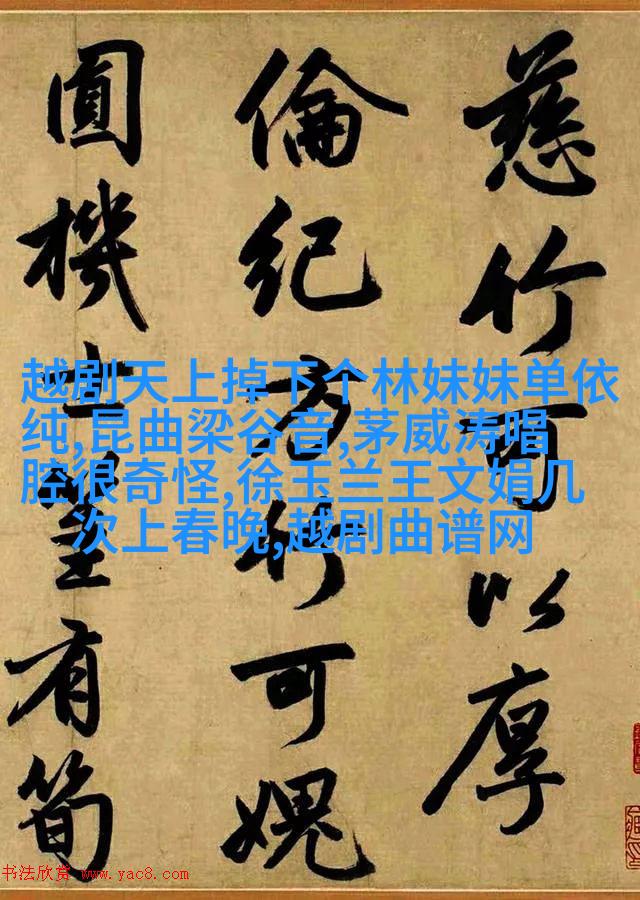 慈竹可以厚
倫紀方竹可媿
圓機士有筍
越剧天上掉下个林妹妹单依
纯,昆曲梁谷音,茅威涛唱
腔很奇怪,徐玉兰王文娟几
次上春晚,越剧曲谱网
书法欣赏 www.yac8.com